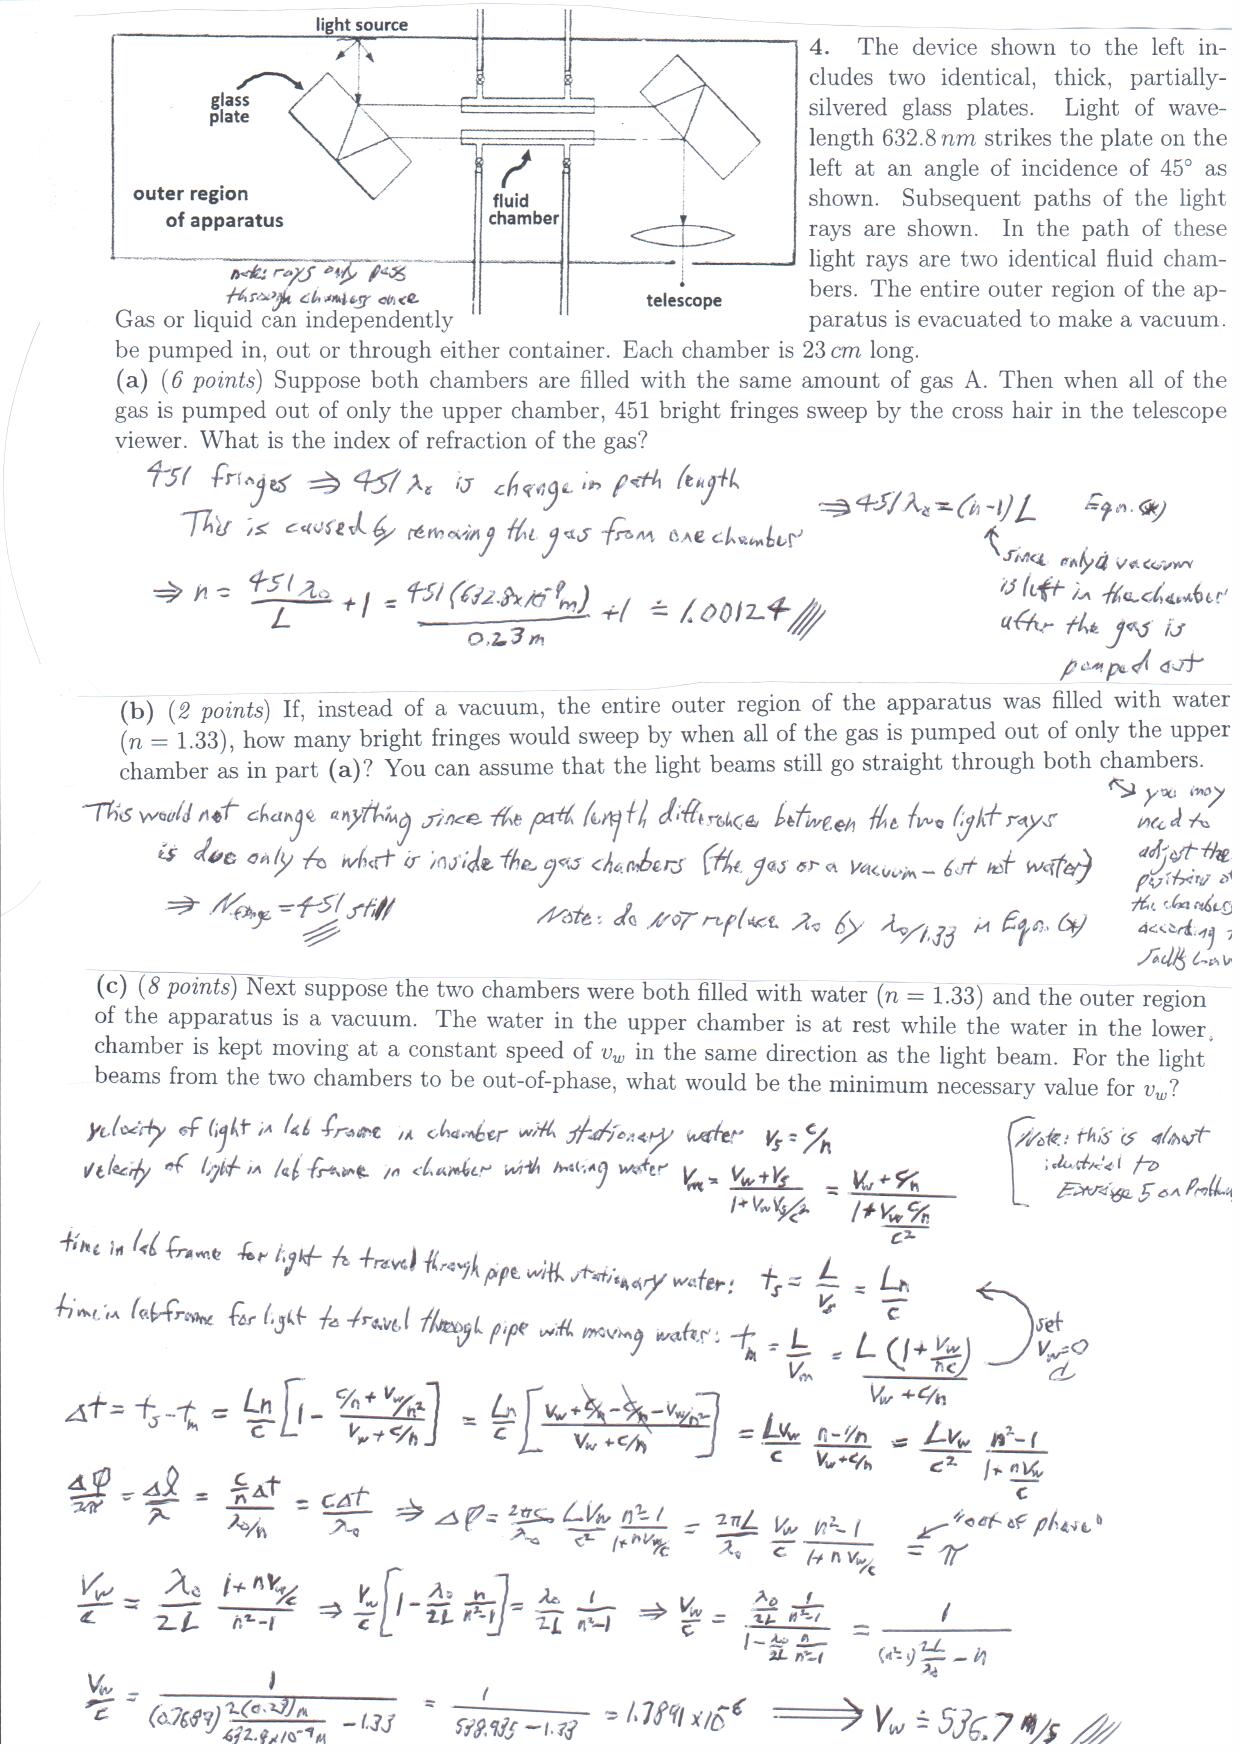 light source
glass
plate
outer region
of apparatus
fluid
chamber
telescope
note: rays only pass
through chambers once
4. The device shown to the left in-
cludes two identical, thick, partially-
silvered glass plates. Light of wave-
length 632.8 nm strikes the plate on the
left at an angle of incidence of 45° as
shown. Subsequent paths of the light
rays are shown. In the path of these
light rays are two identical fluid cham-
bers. The entire outer region of the ap-
Gas or liquid can independently paratus is evacuated to make a vacuum.
be pumped in, out or through either container. Each chamber is 23 cm long.
(a) (6 points) Suppose both chambers are filled with the same amount of gas A. Then when all of the
gas is pumped out of only the upper chamber, 451 bright fringes sweep by the cross hair in the telescope
viewer. What is the index of refraction of the gas?
451 fringes ⇒ 451 λ₀ is change in path length
This is caused by removing the gas from one chamber
⇒ 451 λ₀ = (n-1) L Eqn. (*)
since only a vacuum
is left in the chamber
after the gas is
pumped out
⇒ n = 451 λ₀ / L + 1 = 451 (632.8x10⁻⁹m) / 0.23 m + 1 ≐ 1.00124
(b) (2 points) If, instead of a vacuum, the entire outer region of the apparatus was filled with water
(n = 1.33), how many bright fringes would sweep by when all of the gas is pumped out of only the upper
chamber as in part (a)? You can assume that the light beams still go straight through both chambers.
you may
need to
adjust the
the chambers
according
This would not change anything since the path length difference between the two light rays
is due only to what is inside the gas chambers (the gas or a vacuum - but not water)
⇒ N fringe = 451 still
Note: do NOT replace λ₀ by λ₀/1.33 in Eqn. (*)
(c) (8 points) Next suppose the two chambers were both filled with water (n = 1.33) and the outer region
of the apparatus is a vacuum. The water in the upper chamber is at rest while the water in the lower
chamber is kept moving at a constant speed of v_w in the same direction as the light beam. For the light
beams from the two chambers to be out-of-phase, what would be the minimum necessary value for v_w?
velocity of light in lab frame in chamber with stationary water v_s = c/n
velocity of light in lab frame in chamber with moving water v_m = (v_w + v_s) / (1 + v_w v_s/c²) = (v_w + c/n) / (1 + (v_w c/n)/c²)
[Note: this is almost
identical to
Exercise 5 on
time in lab frame for light to travel through pipe with stationary water: t_s = L/v_s = Ln/c
time in lab frame for light to travel through pipe with moving water: t_m = L/v_m = L (1 + v_w/nc) / (v_w + c/n)
set
v_w = 0
Δt = t_s - t_m = Ln/c [1 - (c/n + v_w/n²) / (v_w + c/n)] = Ln/c [(v_w + c/n - c/n - v_w/n²) / (v_w + c/n)] = L v_w/c (n - 1/n) / (v_w + c/n) = L v_w/c² (n² - 1) / (1 + n v_w/c)
Δφ/2π = Δl/λ = (c/n Δt) / (λ₀/n) = cΔt/λ₀ ⇒ Δφ = 2πc/λ₀ L v_w/c² (n² - 1) / (1 + n v_w/c) = 2πL/λ₀ v_w/c (n² - 1) / (1 + n v_w/c) = π "out of phase"
v_w/c = λ₀/2L (1 + n v_w/c) / (n² - 1) ⇒ v_w/c [1 - λ₀/2L n/(n²-1)] = λ₀/2L 1/(n²-1) ⇒ v_w/c = (λ₀/2L 1/(n²-1)) / (1 - λ₀/2L n/(n²-1)) = 1 / ((n²-1) 2L/λ₀ - n)
v_w/c = 1 / ((0.7689) 2(0.23)m / 632.8x10⁻⁹m - 1.33) = 1 / (538.935 - 1.33) = 1.7891 x10⁻⁶ ⟹ v_w ≐ 536.7 m/s